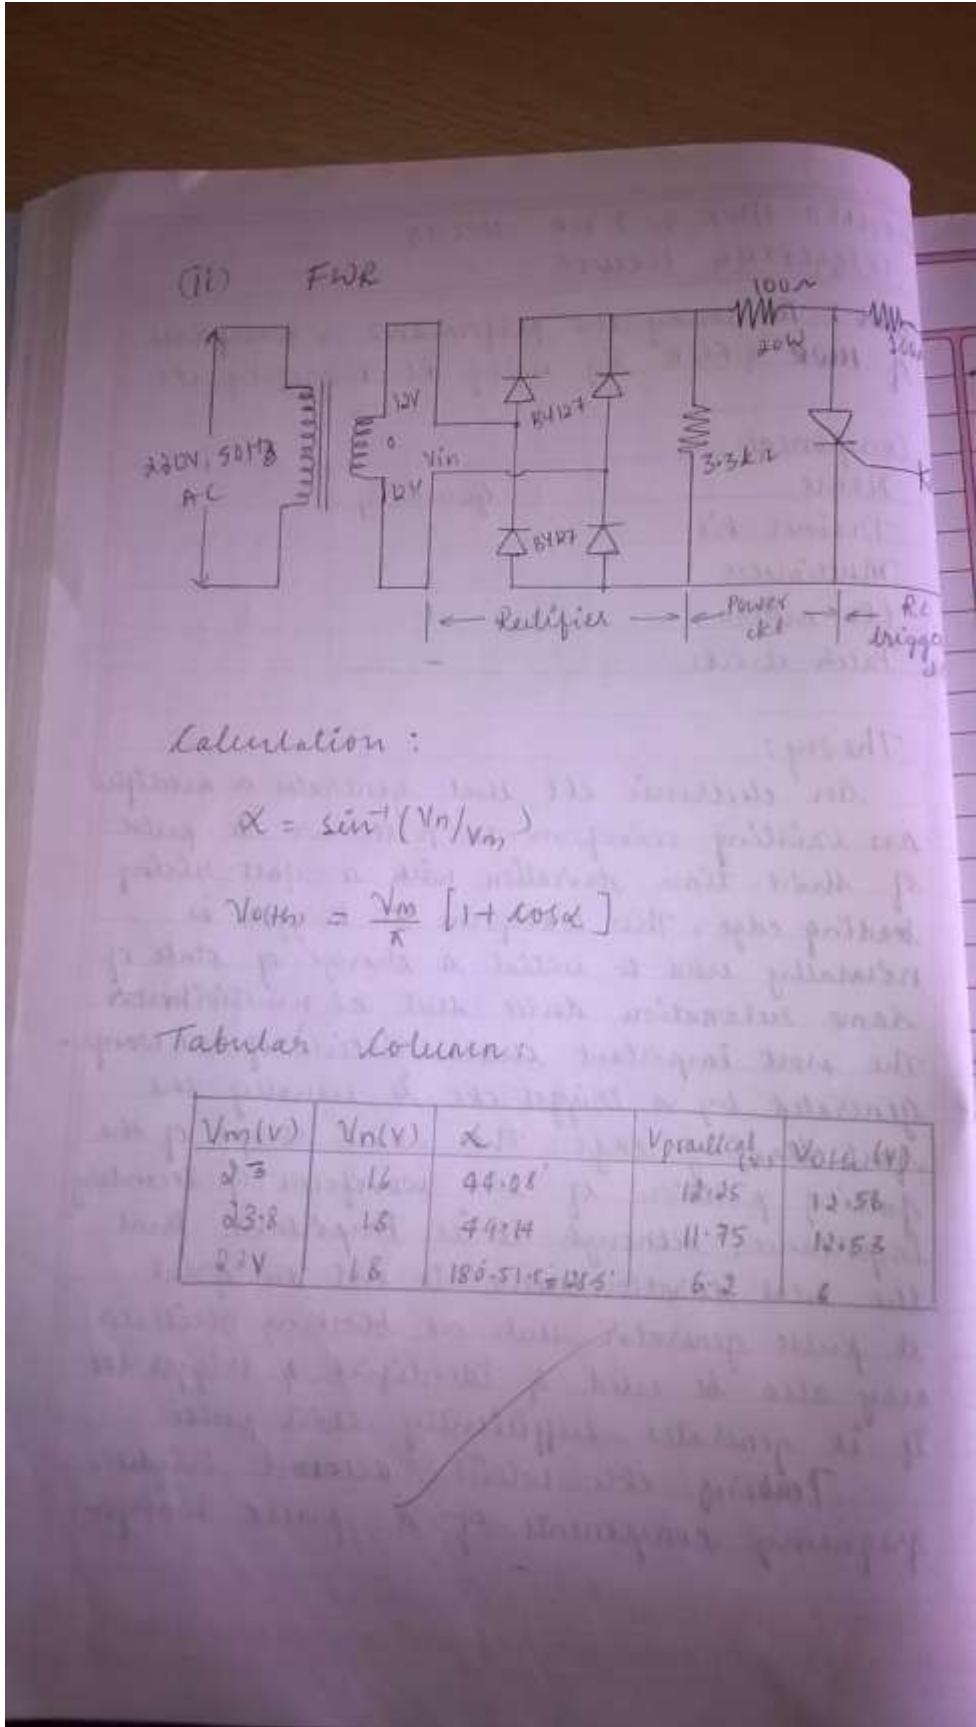 (ii) FWR
100Ω
20W
12V
BY127
0
Vin
3.3kΩ
220V, 50Hz
AC
12V
BY127
Rectifier
Power
ckt
RC
trigge
Calculation :
α = sin⁻¹ (Vn/Vm)
Vo(th) = Vm/π [1 + cosα]
Tabular Column :
Vm(V) Vn(V) α Vpractical (V) Vo(th) (V)
23 16 44.08° 12.25 12.56
23.8 18 49.14 11.75 12.53
23V 18 180-51.5=128.5° 6.2 6